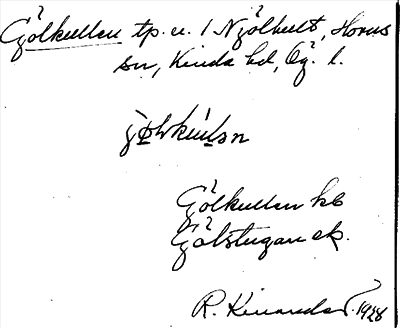 Gölkullen tp. u. / N Gölhult, Horns
sn, Kinda hd, Ög. l.
Gölkullen hb
Gölstugan ek.
R. Kinander. 1928